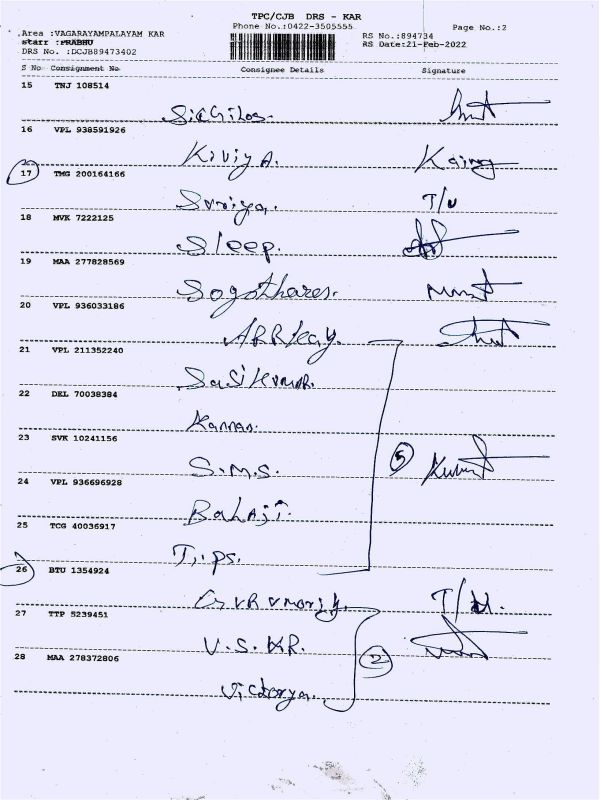 TPC/CJB DRS - KAR
Phone No.:0422-3505555
Page No.:2
Area :VAGARAYAMPALAYAM KAR
RS No.:894734
Starr :PRABHU
RS Date:21-Feb-2022
DRS No. :DCJB89473402
S No Consignment No Consignee Details Signature
15 TNJ 108514
16 VPL 938591926
Kiviya.
17 TMG 200164166
Suriya. T/u
18 MVK 7222125
Sleep.
19 MAA 277828569
Sogothares.
20 VPL 936033186
21 VPL 211352240
Sasikumar.
22 DEL 70038384
Kannan.
23 SVK 10241156
S.M.S. 5
24 VPL 936696928
Balaji.
25 TCG 40036917
Tips.
26 BTU 1354924
27 TTP 5239451
V.S.KR. 2
28 MAA 278372806
Victorya.